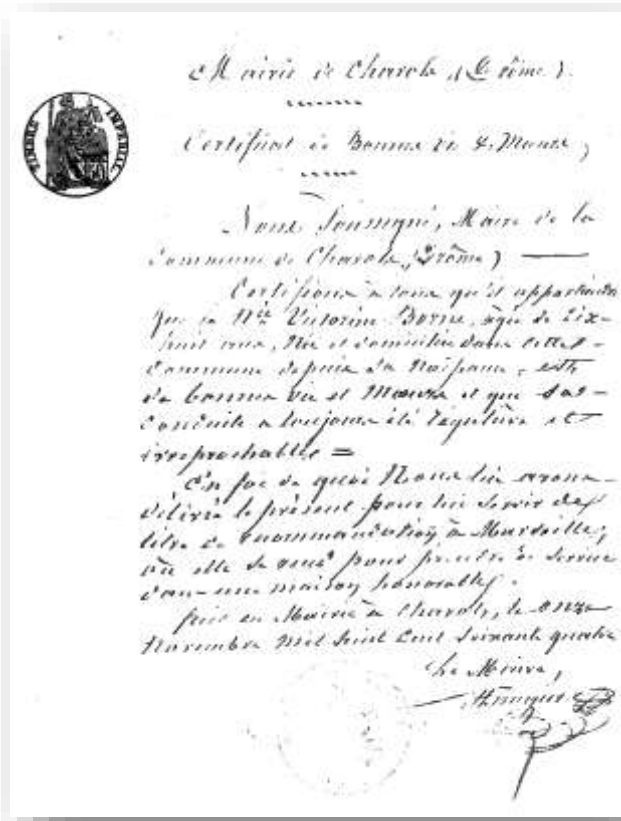 Mairie de Charols, (Drôme).
TIMBRE IMPERIAL
Certificat de Bonnes Vie & Mœurs,
Nous Soussigné, Maire de la
Commune de Charols, (Drôme)
Certifions à tous qu'il appartiendra
que la Née Victorine Borne, âgée de dix-
huit ans, Née et domiciliée dans cette
Commune depuis sa Naissance, est
de bonnes vie et Mœurs et que sa
Conduite a toujours été régulière et
irréprochable =
En foi de quoi Nous lui avons
délivré le présent pour lui servir de
titre de recommandation à Marseille,
où elle se rend pour prendre du service
dans une maison honorable.
fait en Mairie à Charols, le onze
Novembre Mil huit Cent Soixante quatre
Le Maire,